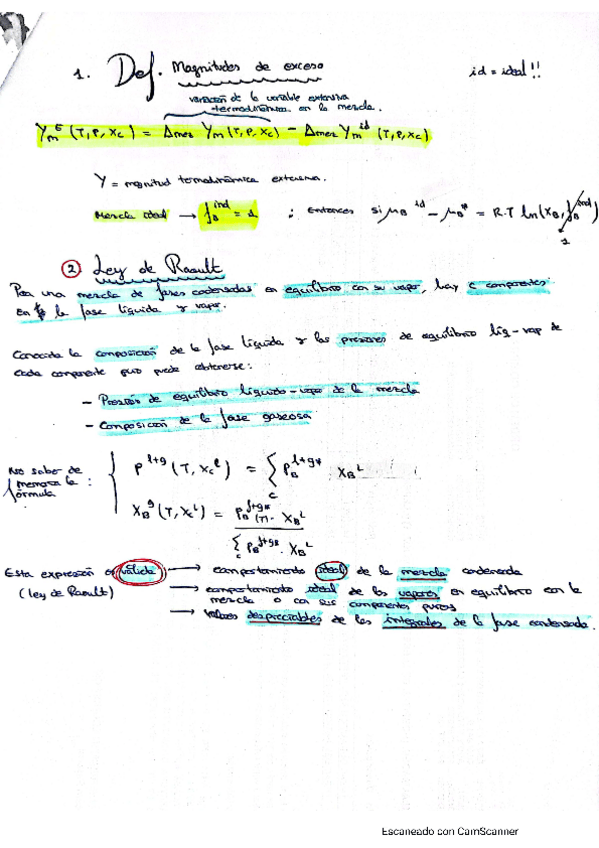 1. Def. Magnitudes de exceso
id = ideal!!
variación de la variable extensiva
termodinámica en la mezcla.
Ym^E (T, P, xc) = Δmez Ym (T, P, xc) - Δmez Ym^id (T, P, xc)
Y = magnitud termodinámica extensiva.
Mezcla ideal → f_B^ind = 1 ; Entonces si μ_B^id - μ_B^* = R.T ln(x_B, f_B^ind)
1
2 Ley de Raoult
Para una mezcla de fases condensadas en equilibrio con su vapor, hay c componentes
en la fase líquida y vapor.
Conocida la composición de la fase líquida y las presiones de equilibrio líq-vap de
cada componente puro puede obtenerse:
- Presión de equilibrio líquido-vapor de la mezcla
- Composición de la fase gaseosa
No saber de
memoria la :
fórmula
P^l+g (T, xc^l) = Σ_c P_B^l+g* x_B^L
x_B^g (T, xc^L) = P_B^l+g* (T) · x_B^L
Σ_c P_B^l+g* · x_B^L
Esta expresión es válida → comportamiento ideal de la mezcla condensada
(ley de Raoult) → comportamiento ideal de los vapores en equilibrio con la
mezcla o con sus componentes puros
→ valores despreciables de las integrales de la fase condensada.
Escaneado con CamScanner